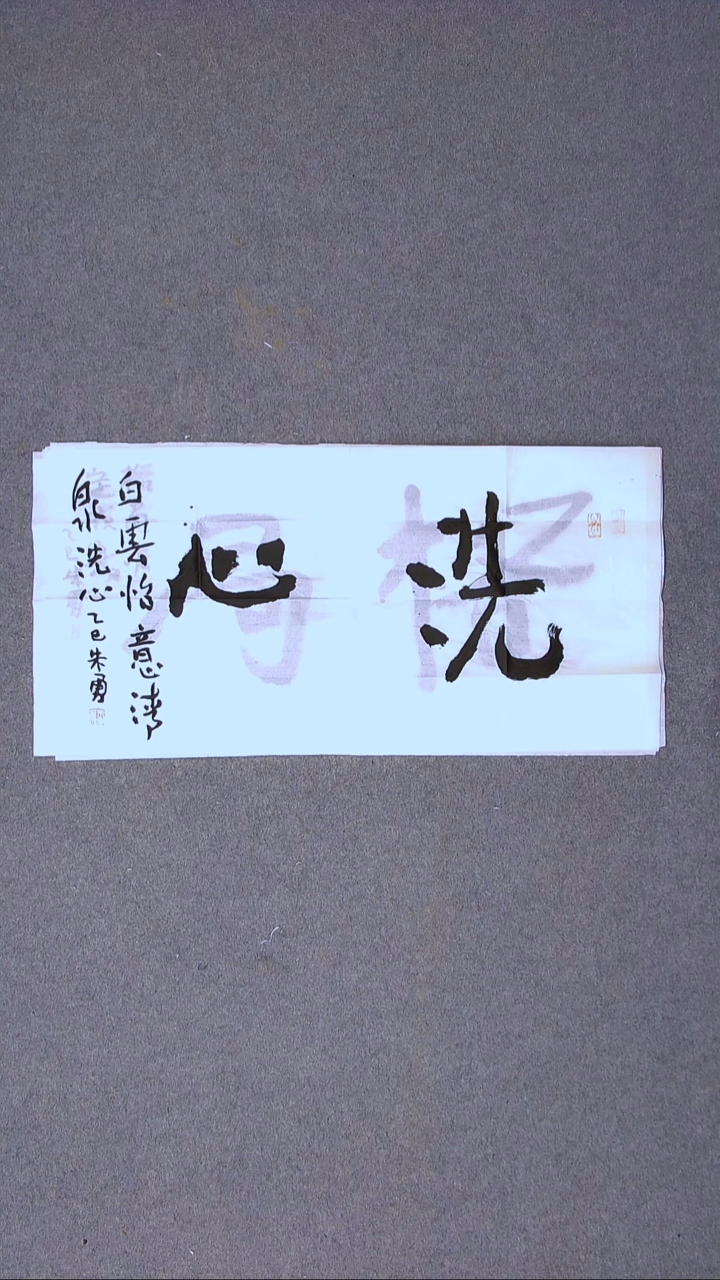 洗心
白雲怡意清
泉洗心乙巳朱勇